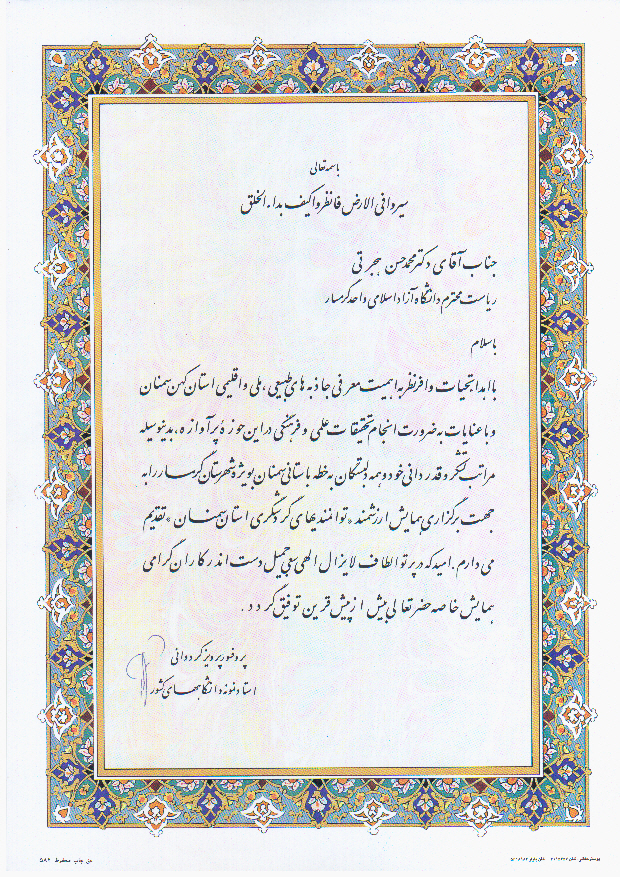 باسمه تعالی
سیروا فی الارض فانظروا کیف بداء الخلق
جناب آقای دکتر محمد حسن حجرتی
ریاست محترم دانشگاه آزاد اسلامی واحد گرمسار
باسلام
با اهدا تحیات وافر نظر به اهمیت معرفی جاذبه های طبیعی، ملی و اقلیمی استان کهن سمنان
و با عنایات به ضرورت انجام تحقیقات علمی و فرهنگی در این حوزه پرآوازه، بدینوسیله
مراتب تشکر و قدردانی خود و همه دلبستگان به خطه باستانی سمنان بویژه شهرستان گرمسار را به
جهت برگزاری همایش ارزشمند «توانمندیهای گردشگری استان سمنان» تقدیم
می دارم. امید که در پرتو الطاف لایزال الهی سعی جمیل دست اندرکاران گرامی
همایش خاصه حضرتعالی بیش از پیش قرین توفیق گردد.
پروفسور پرویز کردوانی
استاد نمونه دانشگاههای کشور
حق چاپ محفوظ ۵۸۲